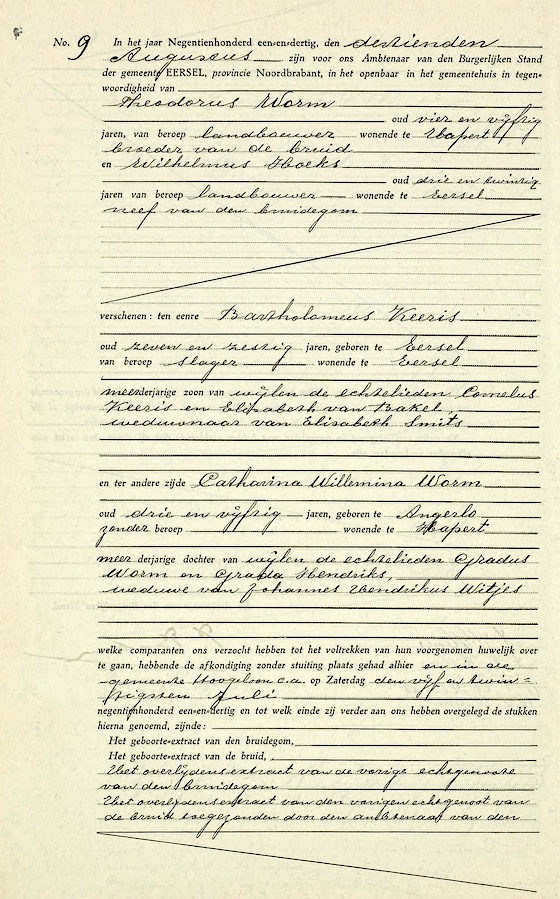 No. 9 In het jaar Negentienhonderd een-en-dertig, den dertienden
Augustus zijn voor ons Ambtenaar van den Burgerlijken Stand
der gemeente EERSEL, provincie Noordbrabant, in het openbaar in het gemeentehuis in tegen-
woordigheid van
Theodorus Worm
oud vier en vijftig
jaren, van beroep landbouwer wonende te Hapert
broeder van de bruid
en Wilhelmus Hoeks
oud drie en twintig
jaren van beroep landbouwer wonende te Eersel
neef van den bruidegom
verschenen: ten eenre Bartholomeus Keeris
oud zeven en zestig jaren, geboren te Eersel
van beroep slager wonende te Eersel
meerderjarige zoon van wijlen de echtelieden Cornelus
Keeris en Elisabeth van Bakel,
weduwnaar van Elisabeth Smits
en ter andere zijde Catharina Willemina Worm
oud drie en vijftig jaren, geboren te Angerlo
zonder beroep wonende te Hapert
meer derjarige dochter van wijlen de echtelieden Gradus
Worm en Grada Hendriks,
weduwe van Johannes Hendrikus Witjes
welke comparanten ons verzocht hebben tot het voltrekken van hun voorgenomen huwelijk over
te gaan, hebbende de afkondiging zonder stuiting plaats gehad alhier en in de
gemeente Hoogeloon c.a. op Zaterdag den vijf en twin=
tigsten Juli
negentienhonderd een-en-dertig en tot welk einde zij verder aan ons hebben overgelegd de stukken
hierna genoemd, zijnde:
Het geboorte-extract van den bruidegom,
Het geboorte-extract van de bruid,
Het overlijdensextract van de vorige echtgenoote
van den bruidegom
Het overlijdensextract van den vorigen echtgenoot van
de bruid toegezonden door den ambtenaar van den